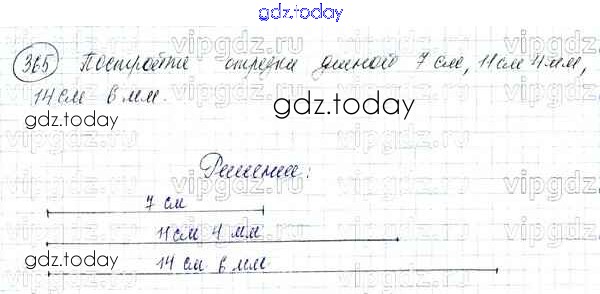 gdz.today
365 Постройте отрезки длиной 7 см, 11 см 4 мм,
14 см 6 мм.
gdz.today
gdz.today
Решение:
7 см
11 см 4 мм
gdz.today
14 см 6 мм